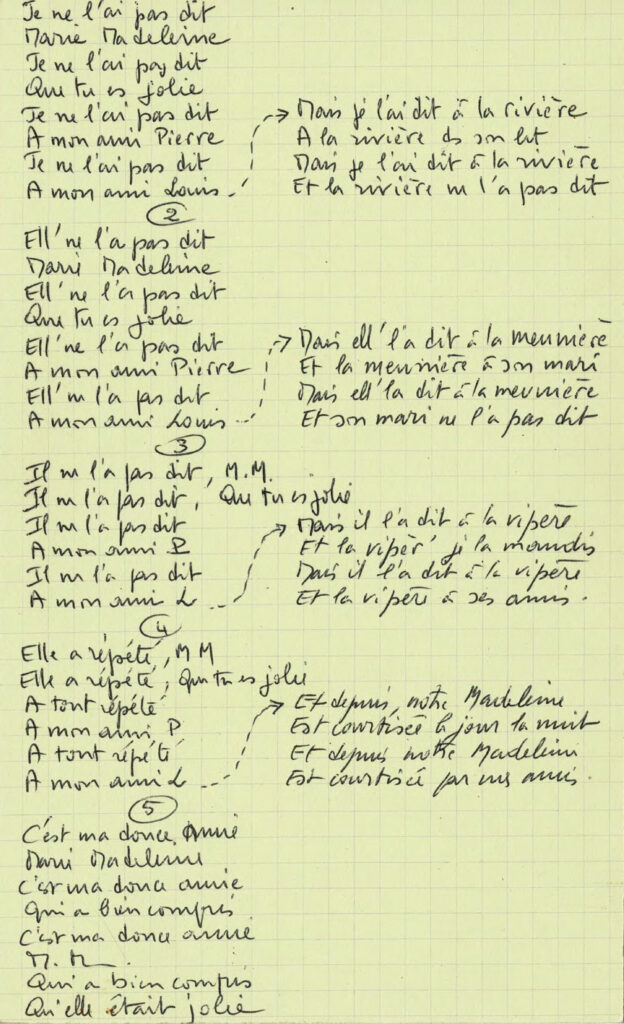 Je ne l'ai pas dit
Marie Madeleine
Je ne l'ai pas dit
Que tu es jolie
Je ne l'ai pas dit
A mon ami Pierre
Je ne l'ai pas dit
A mon ami Louis
Mais je l'ai dit à la rivière
A la rivière ds son lit
Mais je l'ai dit à la rivière
Et la rivière ne l'a pas dit
2
Ell' ne l'a pas dit
Marie Madeleine
Ell' ne l'a pas dit
Que tu es jolie
Ell' ne l'a pas dit
A mon ami Pierre
Ell' ne l'a pas dit
A mon ami Louis
Mais ell' l'a dit à la meunière
Et la meunière à son mari
Mais ell' la dit à la meunière
Et son mari ne l'a pas dit
3
Il ne l'a pas dit, M.M.
Il ne l'a pas dit, Que tu es jolie
Il ne l'a pas dit
A mon ami P
Il ne l'a pas dit
A mon ami L
Mais il l'a dit à la vipère
Et la vipèr' je la maudis
Mais il l'a dit à la vipère
Et la vipère à ses amis.
4
Elle a répété, M M
Elle a répété, Que tu es jolie
A tout répété
A mon ami P
A tout répété
A mon ami L
Et depuis, notre Madeleine
Est courtisée le jour la nuit
Et depuis notre Madeleine
Est courtisée par mes amis.
5
C'est ma douce amie
Marie Madeleine
C'est ma douce amie
Qui a bien compris
C'est ma douce amie
M. M.
Qui a bien compris
Qu'elle était jolie